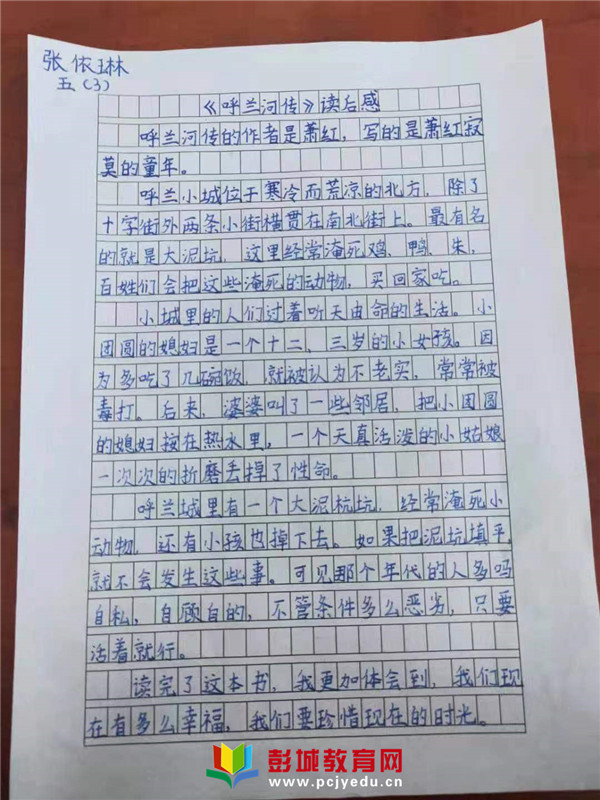 张依琳
五(3)
《呼兰河传》读后感
呼兰河传的作者是萧红，写的是萧红寂
莫的童年。
呼兰小城位于寒冷而荒凉的北方，除了
十字街外两条小街横贯在南北街上。最有名
的就是大泥坑，这里经常淹死鸡、鸭、朱，
百姓们会把这些淹死的动物，买回家吃。
小城里的人们过着听天由命的生活。小
团圆的媳妇是一个十二，三岁的小女孩。因
为多吃了几碗饭，就被认为不老实，常常被
毒打。后来，婆婆叫了一些邻居，把小团圆
的媳妇按在热水里，一个天真活泼的小姑娘
一次次的折磨丢掉了性命。
呼兰城里有一个大泥杭坑，经常淹死小
动物，还有小孩也掉下去。如果把泥坑填平，
就不会发生这些事。可见那个年代的人多吗
自私，自顾自的，不管条件多么恶劣，只要
活着就行。
读完了这本书，我更加体会到，我们现
在有多么幸福，我们要珍惜现在的时光。
彭城教育网
www.pcjyedu.cn